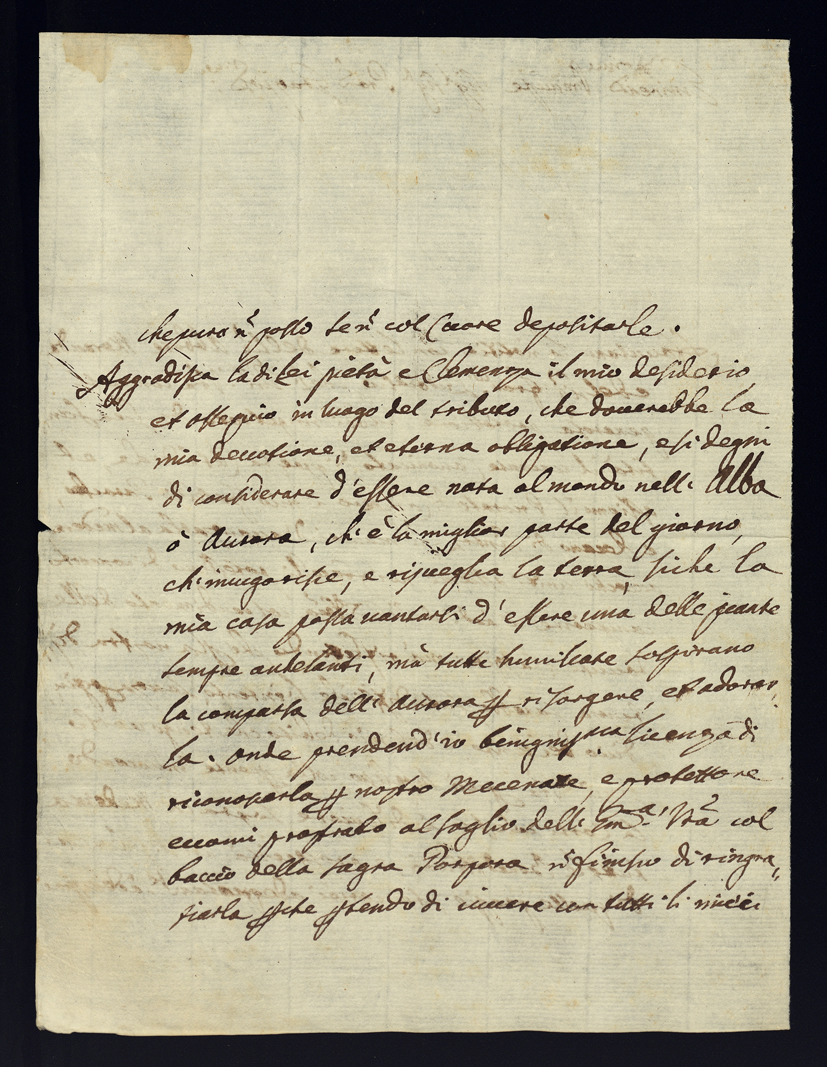 che puro ñ posso se ñ col Cuore depositarle.
Aggradisca la di Lei pietà e Clemenza il mio desiderio
et ossequio in luogo del tributo, che doverebbe la
mia devotione, et eterna obligatione, e si degni
di considerare d'essere nata al mondo nell' Alba
ò Aurora, ch' è la miglior parte del giorno,
ch' invigorisce, e risveglia la terra, siche la
mia casa possa vantarsi d'essere una delle piante
sempre anelanti, mà tutte humiliate sospirano
la comparsa dell' Aurora ꝑ risorgere, et adorar,,
la. onde prendend' io benignissima licenza di
riconoscerla ꝑ nostro Mecenate, e protettore
eccomi prostrato al soglio dell' Em.ᵃ Vr̃a col
baccio della sagra Porpora ñ finisco di ringra,,
tiarla ꝑche ꝑtendo di vivere con tutti li miei